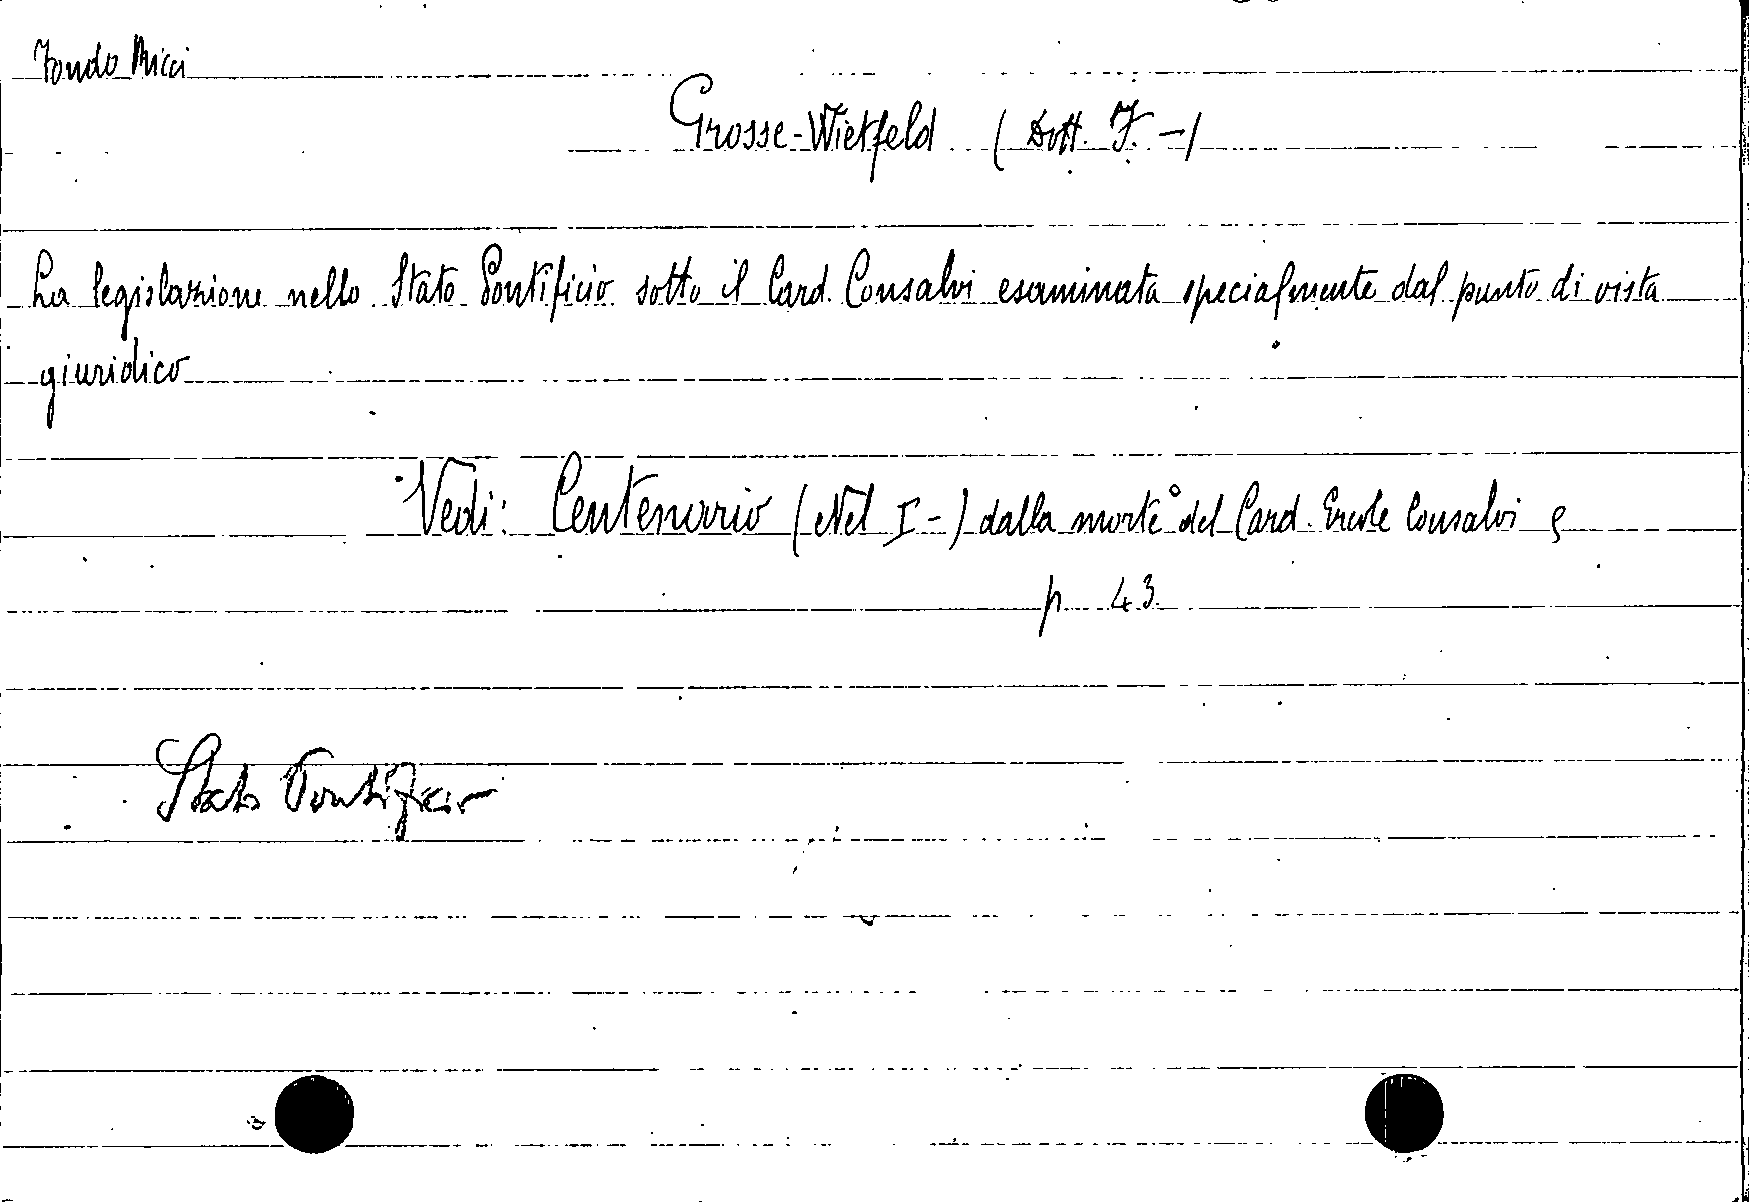 Fondo Ricci
Grosse-Wietfeld (Dott. J. -)
La legislazione nello Stato Pontificio sotto il Card. Consalvi esaminata specialmente dal punto di vista
giuridico
Vedi: Centenario (Nel I -) dalla morte del Card. Ercole Consalvi
p. 43.
Stato Pontificio